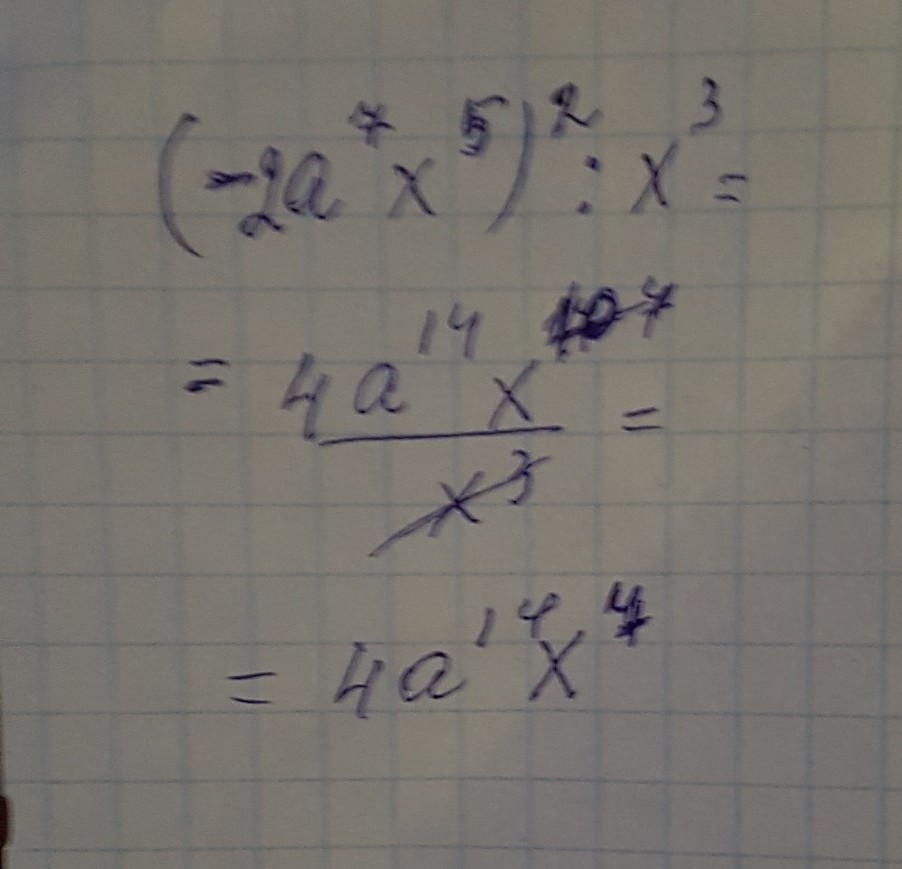 (-2a⁷x⁵)² : x³ =
= 4a¹⁴x¹⁰ ⁷ / x³ =
= 4a¹⁴x⁷